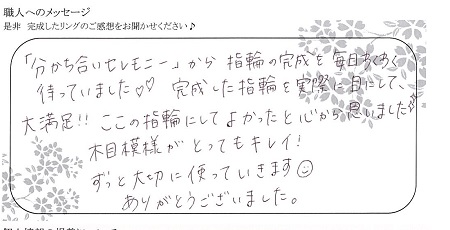 職人へのメッセージ
是非 完成したリングのご感想をお聞かせください♪
「分かち合いセレモニー」から 指輪の完成を 毎日わくわく
待っていました♡♡ 完成した指輪を実際に目にして、
大満足!! ここの指輪にしてよかったと心から思いました
木目模様がとってもキレイ!
ずっと大切に使っていきます☺
ありがとうございました。